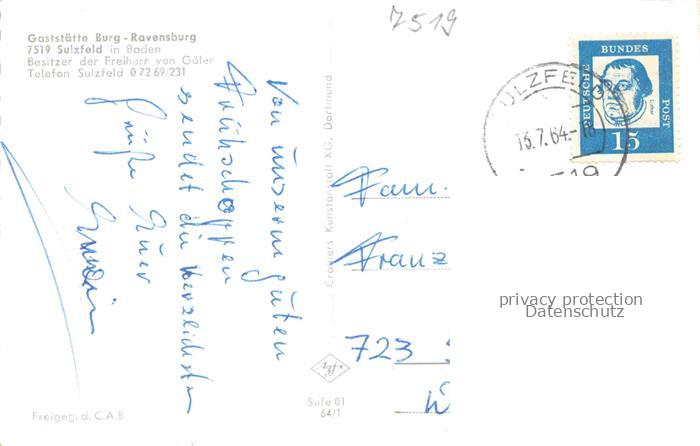 7519
Gaststätte Burg - Ravensburg
7519 Sulzfeld in Baden
Besitzer der Freiherr von Göler
Telefon Sulzfeld 0 72 69/231
Von unserm guten
Frühschoppen
sendet die herzlichsten
Grüße Euer
Erwin
Freigeg. d. C.A.B.
Cramers Kunstanstalt KG., Dortmund
Sufe 01
64/1
DEUTSCHE BUNDES POST
Luther
15
ULZFE
16.7.64.-18
-19
Fam.
Franz
723
privacy protection
Datenschutz